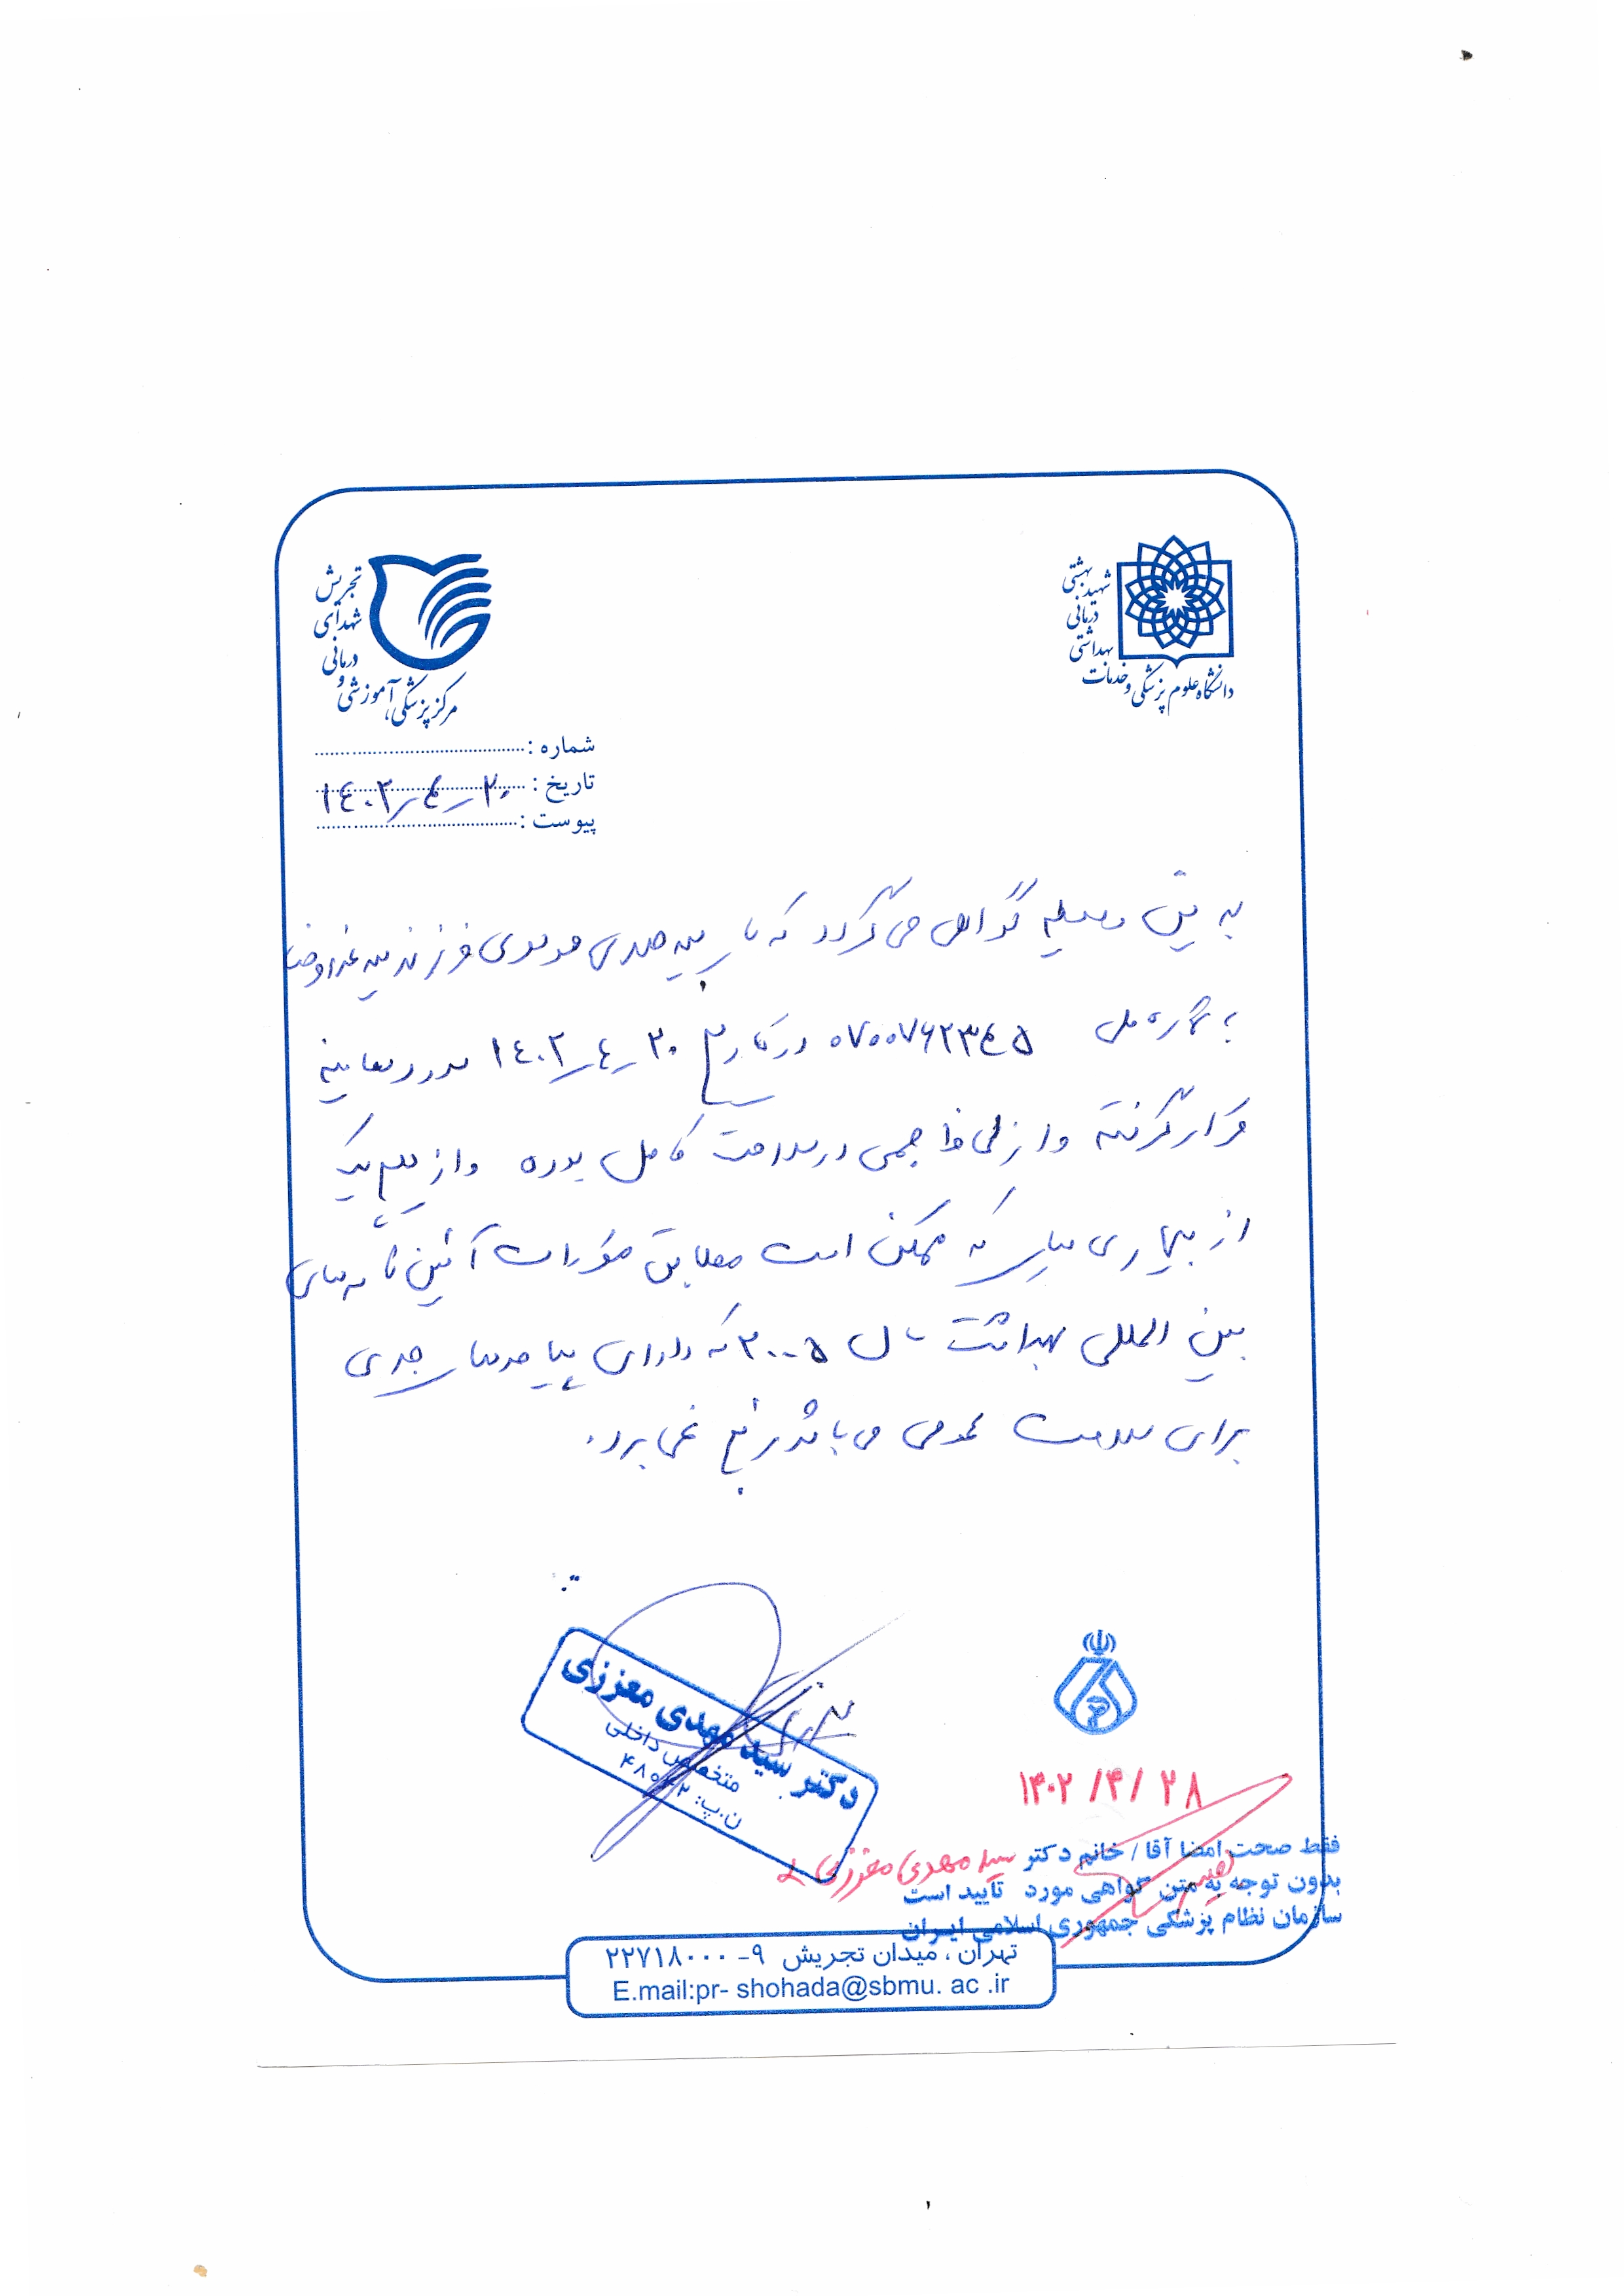 دانشگاه علوم پزشکی و خدمات
بهداشتی
درمانی
شهید بهشتی
مرکز پزشکی، آموزشی و
درمانی
شهدای
تجریش
شماره :
تاریخ : ۱۴۰۲/۴/۲۰
پیوست :
به یتن وسیله گواهی می گردد که سید مهدی موسوی فرزند سید
به شماره ملی ۰۷۰۰۷۶۲۳۴۵ در تاریخ ۱۴۰۲/۴/۲۰ مورد معاینه
قرار گرفته و از لحاظ جسمی در سلامت کامل بوده و از هیچ یک
از بیماری هایی که ممکن است مطابق مقررات آئین نامه های
بین المللی بهداشت سال ۲۰۰۵ که دارای پیامدهای جدی
برای سلامت عمومی می باشد رنج نمی برد.
دکتر سید مهدی معززی
متخصص داخلی
ن.پ:
۱۴۰۲/۴/۲۸
فقط صحت امضا آقا / خانم دکتر سید مهدی معززی
بدون توجه به متن گواهی مورد تایید است
سازمان نظام پزشکی جمهوری اسلامی ایران
تهران ، میدان تجریش ۹-۲۲۷۱۸۰۰۰
E.mail:pr- shohada@sbmu. ac .ir